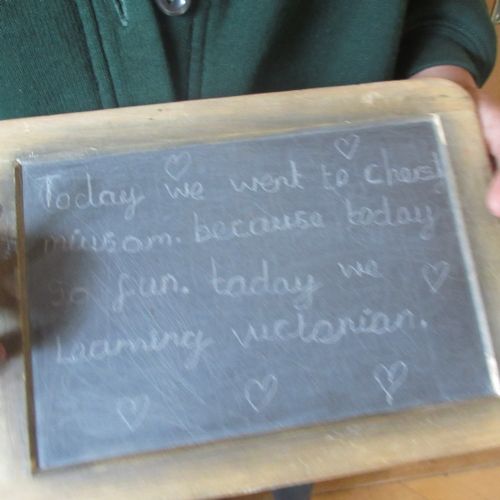 Today we went to chersty
miusom. because today
so fun. today we
Learning victorian.